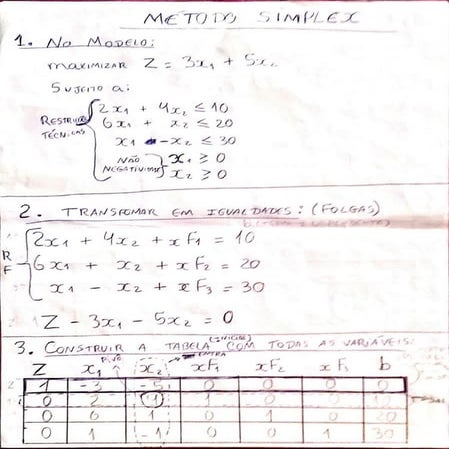 METODO SIMPLEX
1. No MODELO:
MAXIMIZAR Z = 3x₁ + 5x₂
SUJEITO a:
2x₁ + 4x₂ ≤ 10
RESTRIÇÕES 6x₁ + x₂ ≤ 20
TÉCNICAS
x₁ - x₂ ≤ 30
NÃO x₁ ≥ 0
NEGATIVIDADE x₂ ≥ 0
2. TRANSFORMAR EM IGUALDADES: (FOLGAS)
2x₁ + 4x₂ + xF₁ = 10
R F 6x₁ + x₂ + xF₂ = 20
x₁ - x₂ + xF₃ = 30
Z - 3x₁ - 5x₂ = 0
3. CONSTRUIR A TABELA COM TODAS AS VARIÁVEIS:
PIVÔ ENTRA
Z x₁ x₂ xF₁ xF₂ xF₃ b
1 -3 -5 0 0 0 0
0 2 1 0 0
0 6 1 0 1 0 20
0 1 -1 0 0 1 30